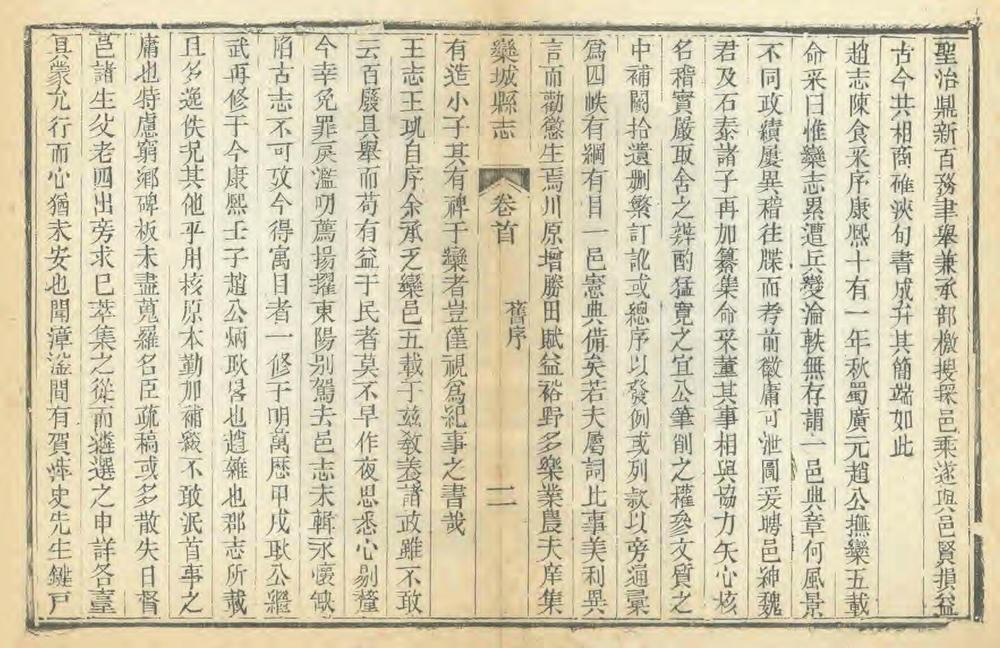 聖治鼎新百務聿舉兼承部檄搜採邑乘遂與邑賢損益
古今共相商確浹旬書成弁其簡端如此
趙志陳食采序康熙十有一年秋蜀廣元趙公撫欒五載
命采曰惟欒志累遭兵變淪軼無存謂一邑典章何風景
不同政績屢異稽往牒而考前徽庸可泄圖爰聘邑紳魏
君及石泰諸子再加纂集命采董其事相與協力矢心核
名稽實嚴取舍之辨酌猛寬之宜公筆削之權參文質之
中補闕拾遺刪繁訂訛或總序以發例或列款以旁通彙
為四帙有綱有目一邑憲典備矣若夫屬詞比事美利異
言而勸懲生焉川原增勝田賦益裕野多樂業農夫庠集
欒城縣志 卷首 舊序 二
有造小子其有裨于欒者豈僅視為紀事之書哉
王志王玑自序余承乏欒邑五載于兹教養諸政雖不敢
云百廢具舉而苟有益于民者莫不早作夜思悉心剔釐
今幸免罪戾濫叨薦揚擢東陽别駕去邑志未輯永懷缺
陷古志不可攷今得寓目者一修于明萬厯甲戌耿公繼
武再修于今康熙壬子趙公炳耿畧也趙雜也郡志所載
且多逸佚况其他乎用核原本勤加補綴不敢泯首事之
庸也特慮窮鄉碑板未盡蒐羅名臣疏稿或多散失日督
邑諸生父老四出旁求巳萃集之從而遴選之申詳各臺
具蒙允行而心猶未安也聞漳滏間有賀 史先生鍵戸